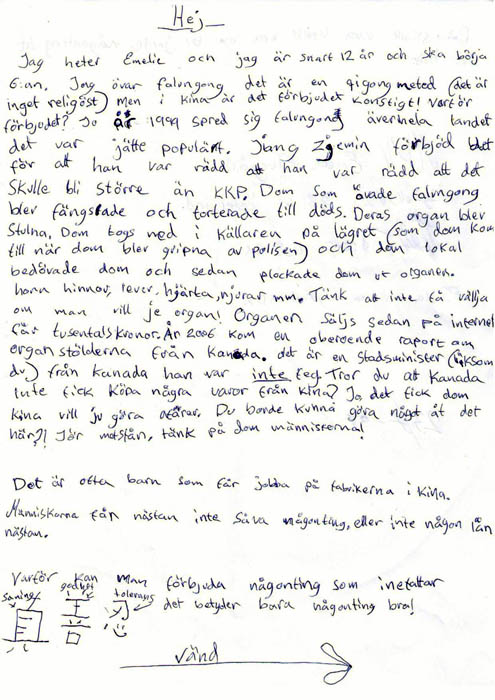 Hej
Jag heter Emelie och jag är snart 12 år och ska börja
6:an. Jag övar falungong det är en qigong metod (det är
inget religöst) men i kina är det förbjudet konstigt! Varför
förbjudet? Jo år 1999 spred sig falungong överhela landet
det var jätte populärt. Jang Zemin förbjöd det
för att han var rädd att han var rädd att det
Skulle bli större än KKP. Dom som övade falungong
blev fängslade och torterade till döds. Deras organ blev
Stulna. Dom togs ned i källaren på lägret (som dom kom
till när dom blev gripna av polisen) och dan lokal
bedövade dom och sedan plockade dom ut organen.
horn hinnor, lever, hjärta, njurar mm. Tänk att inte få välja
om man vill je organ! Organen Säljs sedan på internet
för tusentals kronor. År 2006 kom en oberoende raport om
organ stölderna från Kanada. det är en Stadsminister (liksom
du) från kanada han var inte feg. Tror du att Kanada
inte fick Köpa några varor från kina? Jo, det fick dom
kina vill ju göra afärar. Du borde kunna göra något åt det
här?! Gör motstån, tänk på dom människorna!
Det är ofta barn som får jobba på fabrikerna i kina.
Människorna får nästan inte Såva någonting, eller inte någon lön
nästan.
Varför kan man förbjuda någonting som inefattar
saning godhet tolerans det betyder bara någonting bra!
vänd